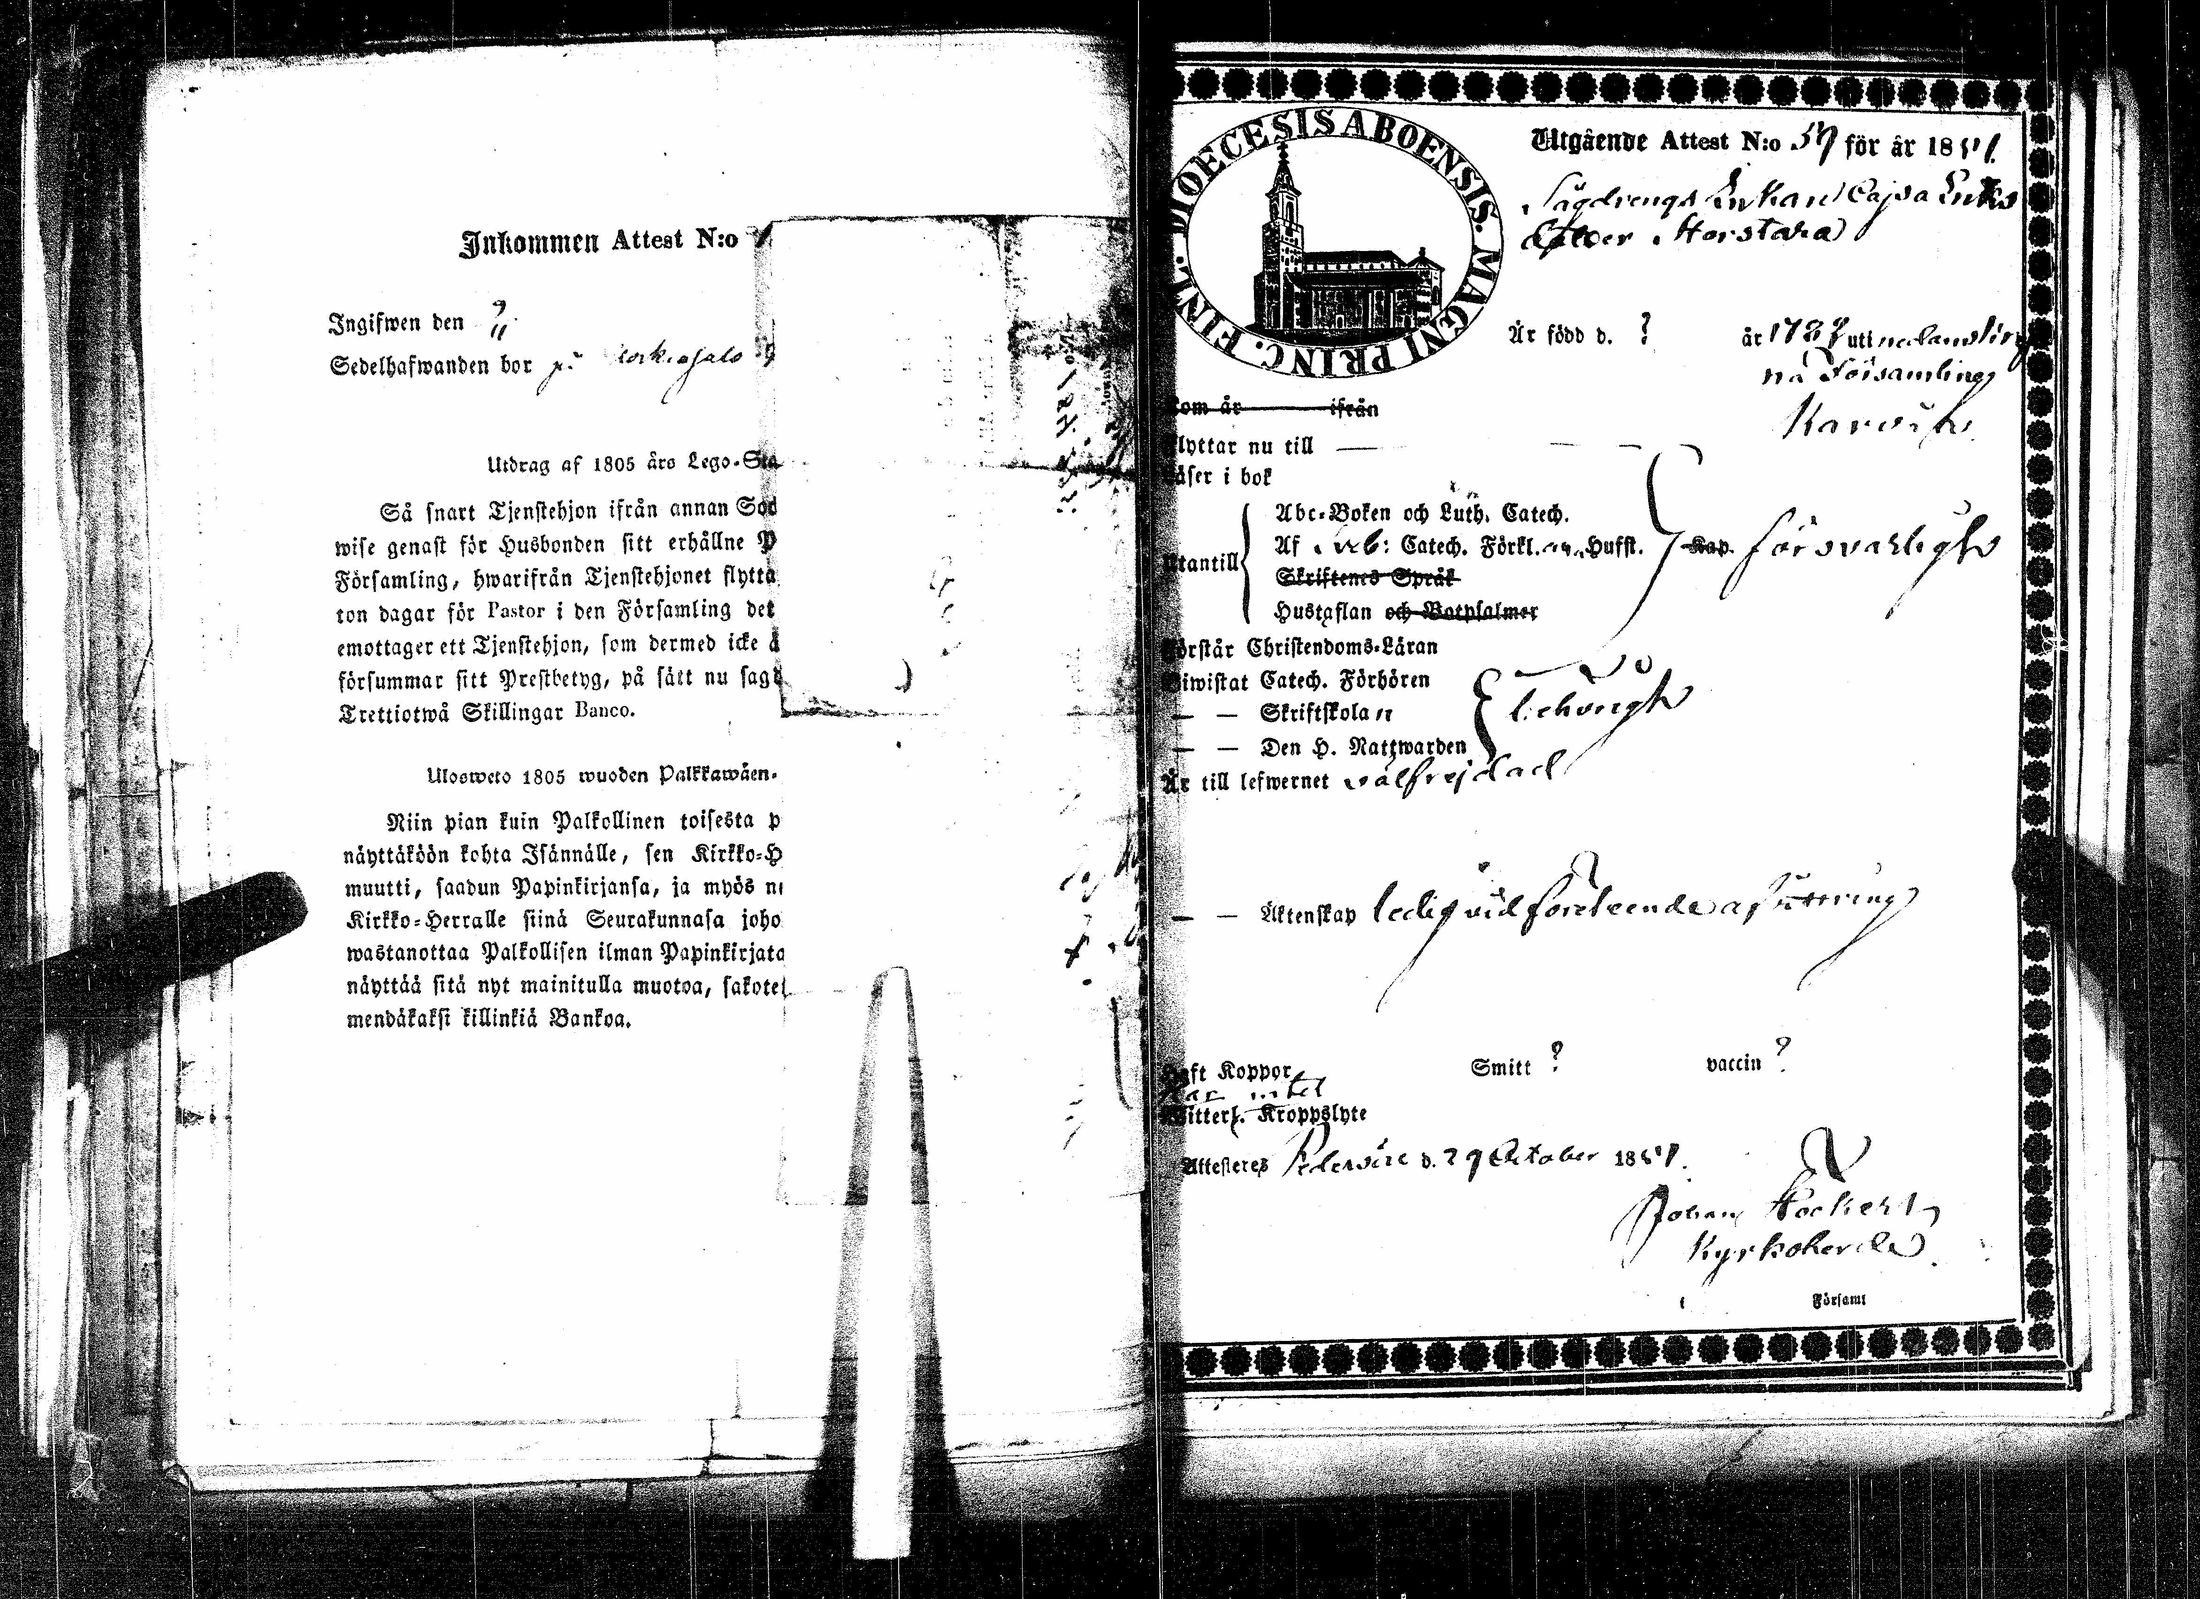 Inkommen Attest N:o
Ingifwen den
Sedelhafwanden bor på
Utdrag af 1805 års Lego-Sta
Så snart Tjenstehjon ifrån annan Soc
wise genast för Husbonden sitt erhållne P
Församling, hwarifrån Tjenstehjonet flytta
ton dagar för Pastor i den Församling det
emottager ett Tjenstehjon, som dermed icke ä
försummar sitt Prestbetyg, på sätt nu sagt
Trettiotwå Skillingar Banco.
Ulosweto 1805 wuoden Palkkawäen-
Niin pian kuin Palkollinen toisesta p
näyttäköön kohta Isännälle, sen Kirkko-H
muutti, saadun Papinkirjansa, ja myös ne
Kirkko-Herralle siinä Seurakunnasa joho
wastanottaa Palkollisen ilman Papinkirjata
näyttää sitä nyt mainitulla muotoa, sakotet
mendäkaksi killinkiä Bankoa.
DIOECESIS ABOENSIS. MAGNI PRINC. FINL.
Utgående Attest N:o 59 för år 18
Enkan Cajsa
Är född d. ? år 178 uti
Församling
kom år ifrån
flyttar nu till —
Läser i bok
Abc-Boken och Luth. Catech.
Utantill Af Catech. Förkl. Husst. Kap. försvarligt
Skriftenes Språk
Hustaflan och Botpsalmer
Förstår Christendoms-Läran
Biwistat Catech. Förhören
— — Skriftskolan
— — Den H. Nattwarden
Är till lefwernet välfrejdad
— — Äktenskap ledig vid företeende af
Haft Koppor Smitt ? vaccin ?
Witterl. Kroppslyte
Attesteres Pedersöre d. 29 October 18
Johan
Kyrkoherde
i Församl